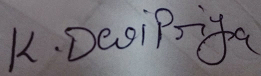 K. DeviPriya